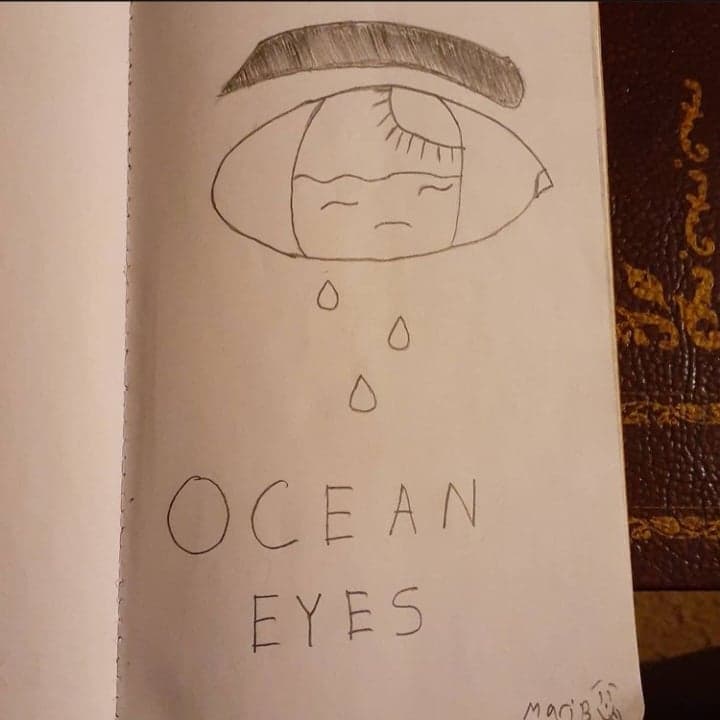 OCEAN
EYES
Mari B